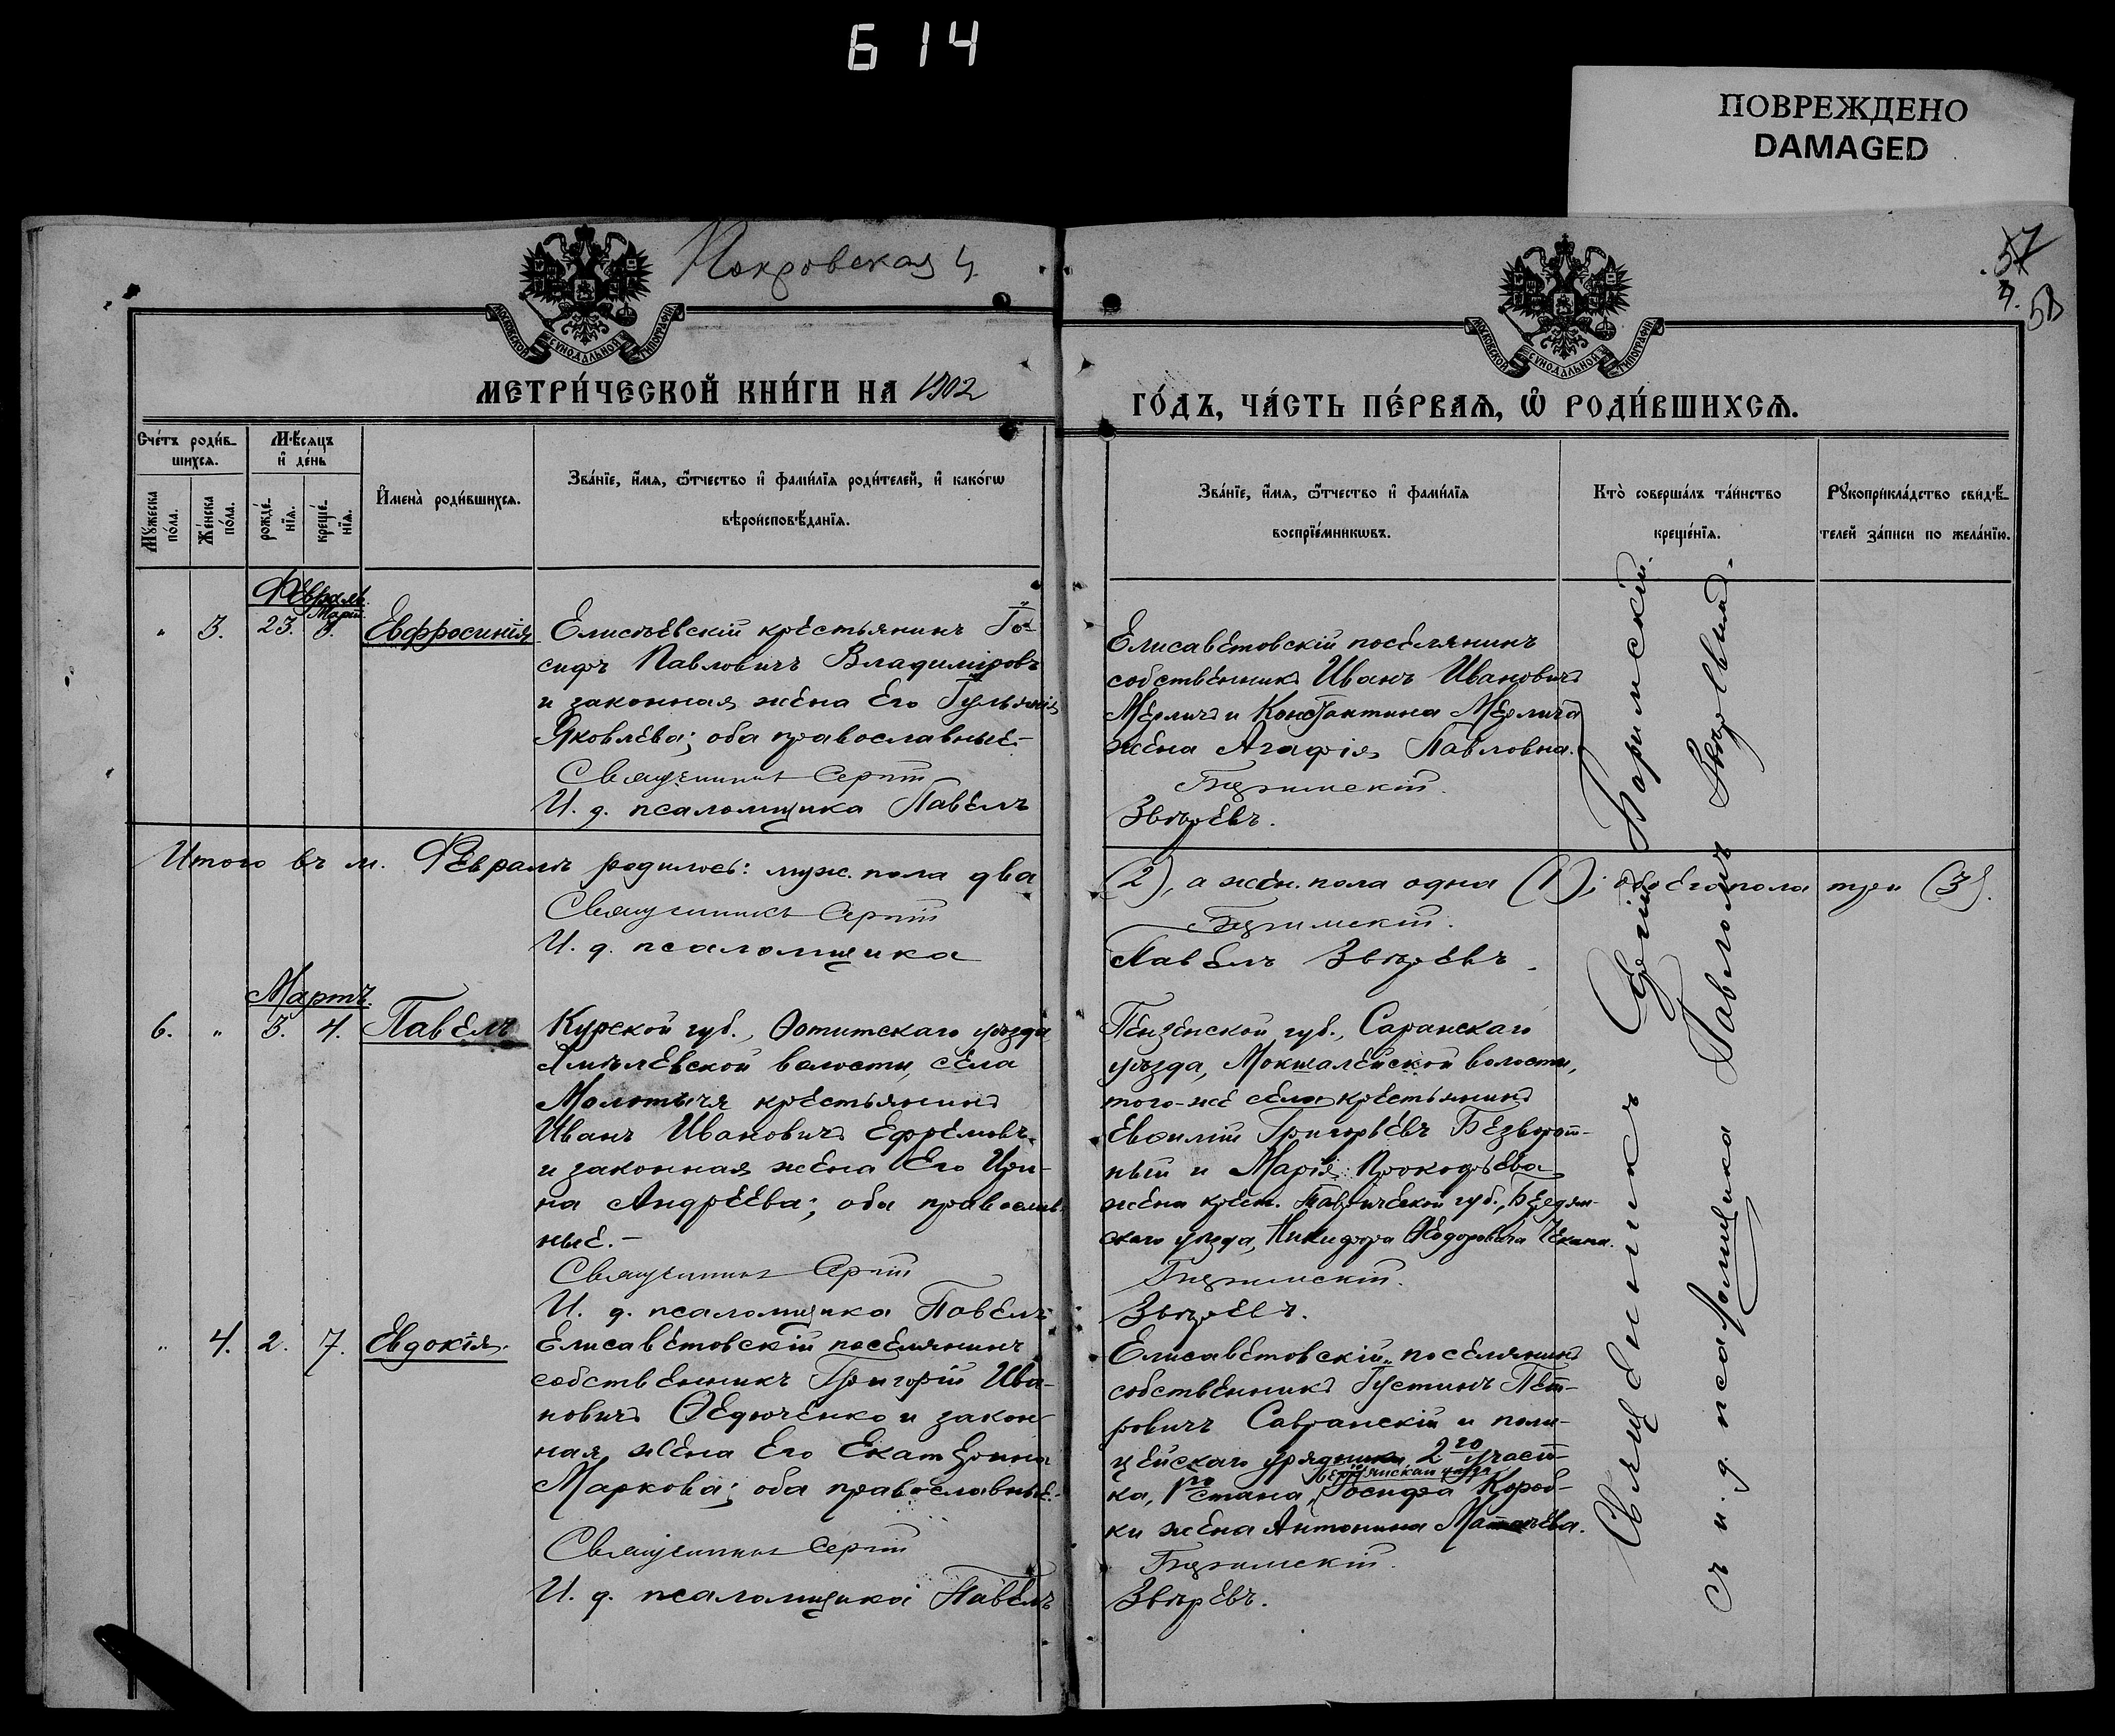 Б 14
ПОВРЕЖДЕНО
DAMAGED
Покровская ц.
57
4.
МОСКОВСКОЙ СУНОДАЛЬНОЙ ТИПОГРАФІИ
МОСКОВСКОЙ СУНОДАЛЬНОЙ ТИПОГРАФІИ
МЕТРИ́ЧЕСКОЙ КНИ́ГИ НА 1902
ГО́ДЪ, ЧА́СТЬ ПЕ́РВАѦ, Ѡ РОДИ́ВШИХСѦ.
Сче́тъ роди́в-
шихсѧ.
Мꙋ́жеска по́ла.
Же́нска по́ла.
Мѣ́сѧцъ
и҆ де́нь
рожде́-
нїѧ.
креще́-
нїѧ.
И҆мена̀ роди́вшихсѧ.
Зва́нїе, и҆́мѧ, ѻ҆́тчество и҆ фами́лїѧ роди́телей, и҆ како́гѡ
вѣроисповѣ́данїѧ.
Зва́нїе, и҆́мѧ, ѻ҆́тчество и҆ фами́лїѧ
воспрїе́мникѡвъ.
Кто̀ соверша́лъ та́инство
креще́нїѧ.
Рꙋкоприкла́дство свидѣ́-
телей за́писи по жела́нїю.
Февраль
Мартъ
" 3. 23. 3. Евфросинія
Елисѣевскій крестьянинъ Іо-
сифъ Павловичъ Владиміровъ
и законная жена его Іульянія
Яковлева; оба православные.-
Священникъ Сергій
И. д. псаломщика Павелъ
Елисаветовскій поселянинъ
собственникъ Иванъ Ивановичъ
Мерличъ и Константина Мерлича
жена Агафія Павловна.
Бѣримскій.
Звѣревъ.
Итого въ м. Февралѣ родилось: муж. пола два
(2), а жен. пола одна (1); обоего пола три (3).
Священникъ Сергій
И. д. псаломщика
Павелъ Звѣревъ.
Мартъ.
6. " 3. 4. Павелъ
Курской губ., Фатитскаго уѣзда
волости, села
Молотыча крестьянинъ
Иванъ Ивановичъ Ефремовъ
и законная жена его Ири-
на Андреева; оба православ-
ные.-
Священникъ Сергій
И. д. псаломщика Павелъ
Пензенской губ., Саранскаго
уѣзда, Мокшалейской волости,
того-же села крестьянинъ
Евфимій Григорьевъ Безворот-
ный и Марія Прокофьева
жена крест. Таврической губ., Бердян-
скаго уѣзда, Никифора Ѳеодоровича Чекана.
Звѣревъ.
" 4. 2. 7. Евдокія.
Елисаветовскій поселянинъ
собственникъ Григорій Ива-
новичъ Ѳедюченко и закон-
ная жена его Екатерина
Маркова; оба православные.-
Священникъ Сергій
И. д. псаломщика Павелъ
Елисаветовскій поселянинъ
собственникъ Іустинъ Пет-
ровичъ Савранскій и поли-
цейскаго урядника 2го участ-
Бердянскаго уѣзда
ка, 1го стана, Іосифа Короб-
ки жена Антонина Матвѣева.
Звѣревъ.
Священникъ Сергій
съ и. д. псаломщика Павломъ Звѣревымъ.